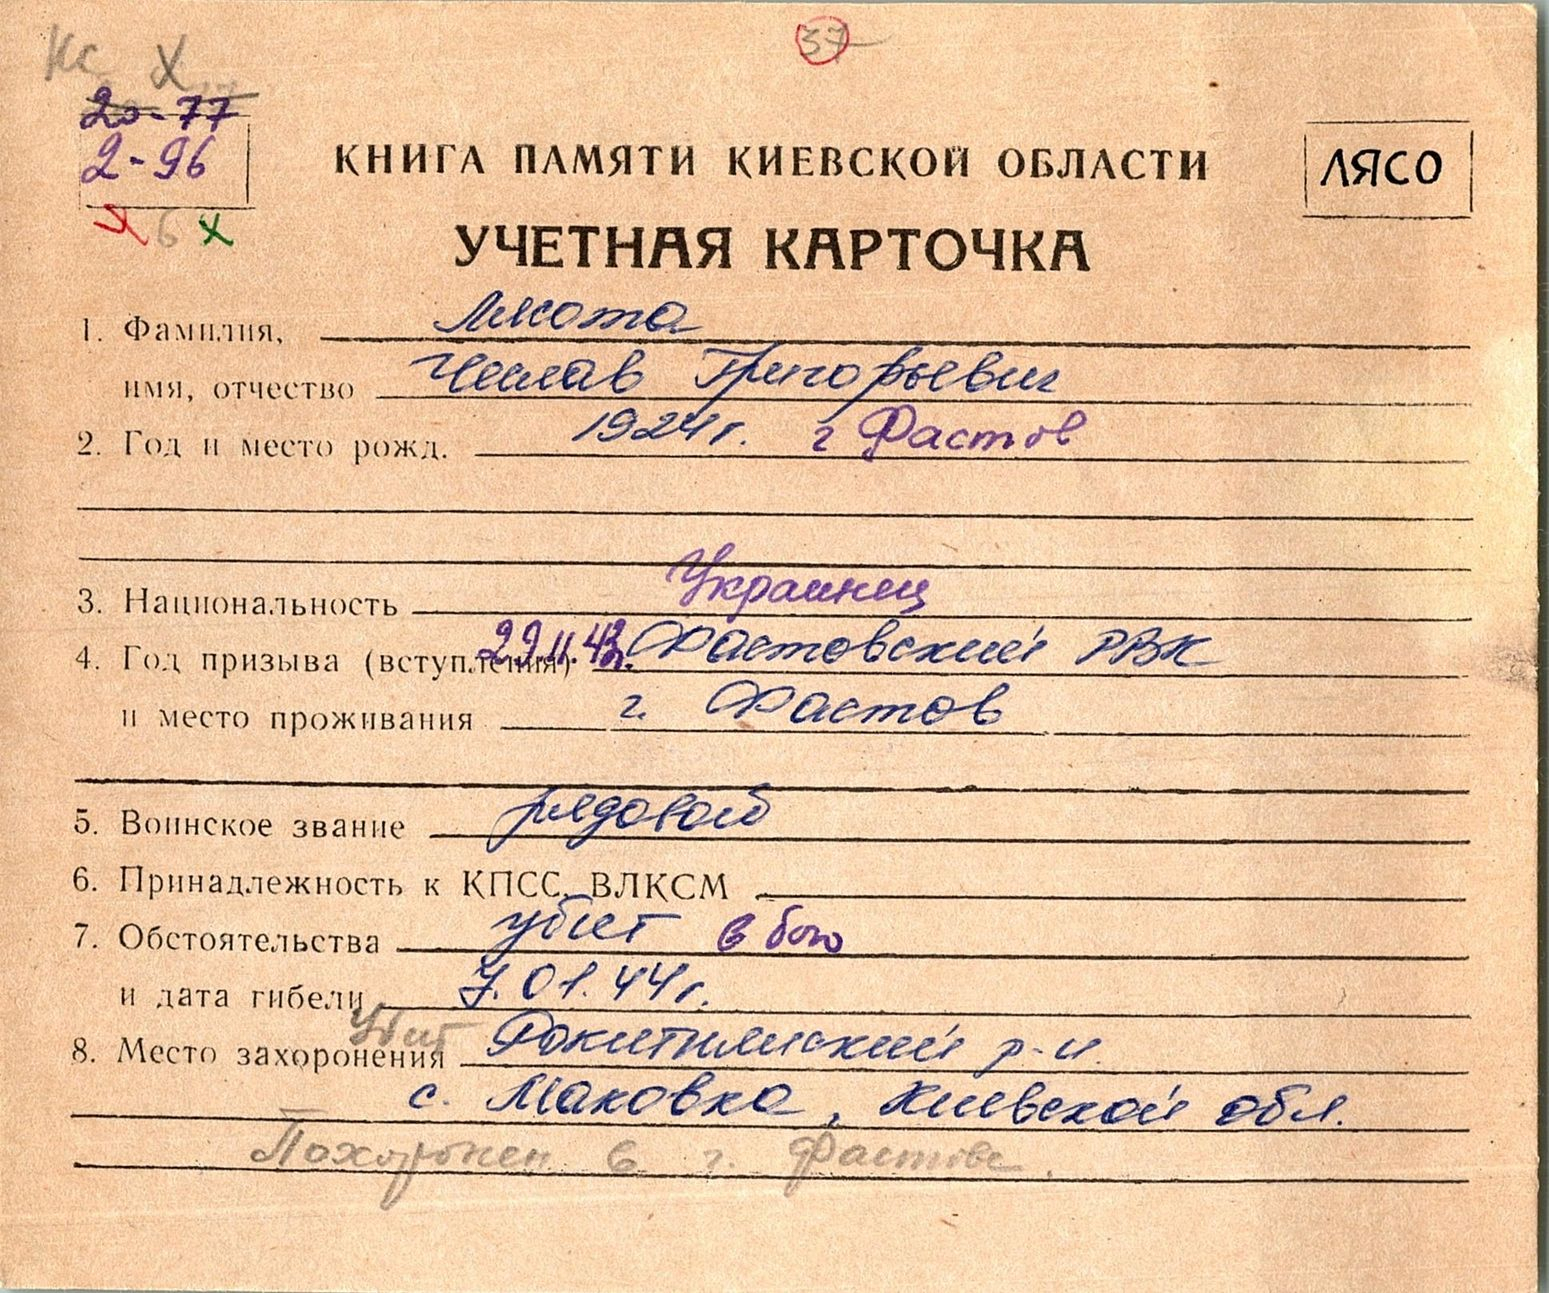 Кс Х
37
20-77
2-96
КНИГА ПАМЯТИ КИЕВСКОЙ ОБЛАСТИ
ЛЯСО
Х 6 Х
УЧЕТНАЯ КАРТОЧКА
1. Фамилия, Лясота
имя, отчество Чеслав Григорьевич
2. Год и место рожд. 1924 г. г Фастов
3. Национальность Украинец
4. Год призыва (вступления) 29.11.43г. Фастовский РВК
и место проживания г. Фастов
5. Воинское звание рядовой
6. Принадлежность к КПСС, ВЛКСМ
7. Обстоятельства убит в бою
и дата гибели 7.01.44г.
Убит
8. Место захоронения Рокитнянский р-н.
с. Маковка, Киевской обл.
Похоронен в г. Фастове.